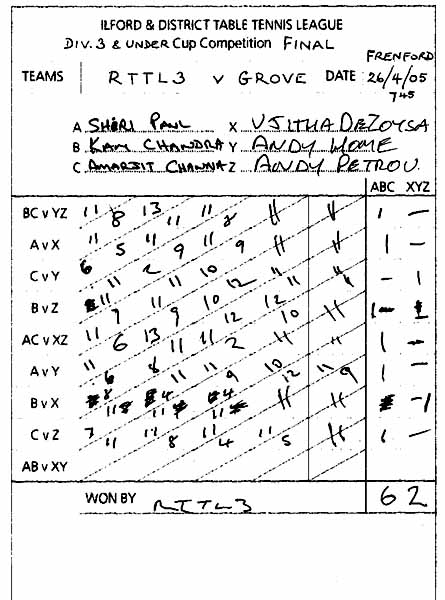 ILFORD & DISTRICT TABLE TENNIS LEAGUE
DIV. 3 & UNDER Cup Competition FINAL
FRENFORD
TEAMS RTTL3 v GROVE DATE 26/4/05
7 45
A SHERI PAUL X VJITHA DEZOYSA
B KAM CHANDRA Y ANDY HOME
C AMARJIT CHANNA Z ANDY PETROU
ABC XYZ
BC v YZ 11 8 13 11 11 2 1 –
A v X 11 5 11 9 11 9 1 –
C v Y 6 11 2 11 10 12 – 1
B v Z 11 7 11 9 10 12 12 10 1 –
AC v XZ 11 6 13 11 11 2 1 –
A v Y 11 6 8 11 11 9 10 12 11 9 1 –
B v X 8 11 4 11 4 11 – 1
C v Z 7 11 11 8 11 4 11 5 1 –
AB v XY
WON BY RTTL3 6 2